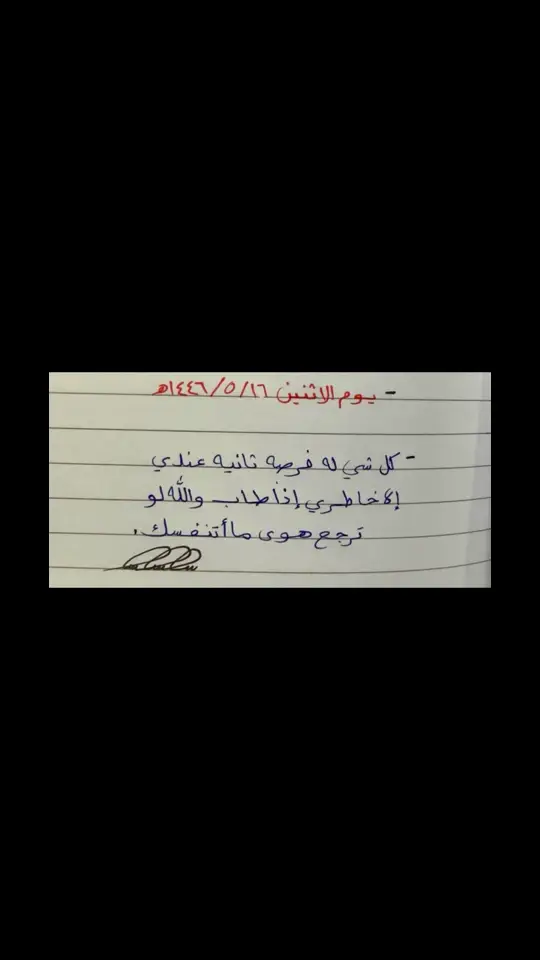 - يوم الاثنين ١٦/٥/١٤٤٦هـ
- كل شي له فرصه ثانيه عندي
إلا خاطري إذا طاب والله لو
ترجع هوى ما أتنفسك.